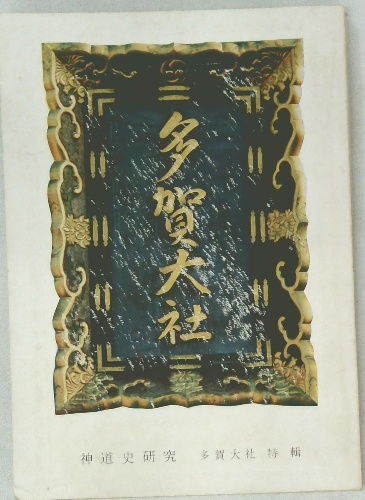 多賀大社
神道史研究 多賀大社 特輯